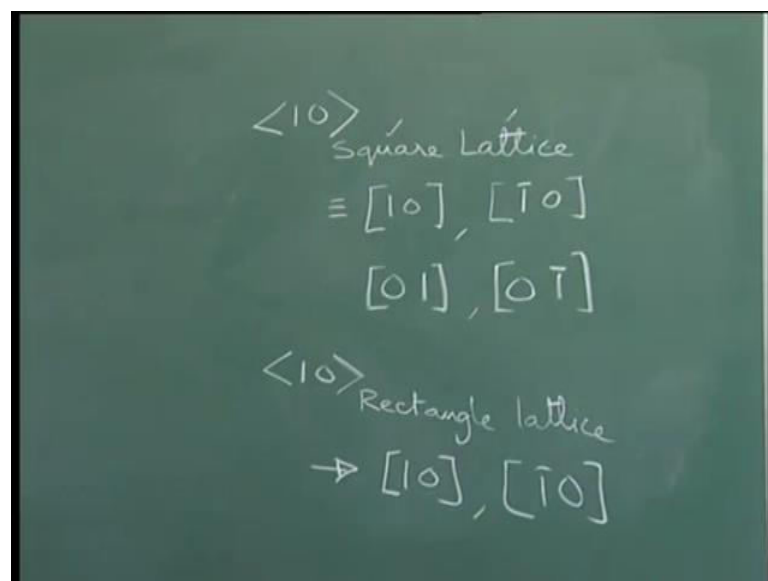 <10>
Square Lattice
≡ [10], [1̄0]
[01], [01̄]
<10>
Rectangle lattice
→ [10], [1̄0]